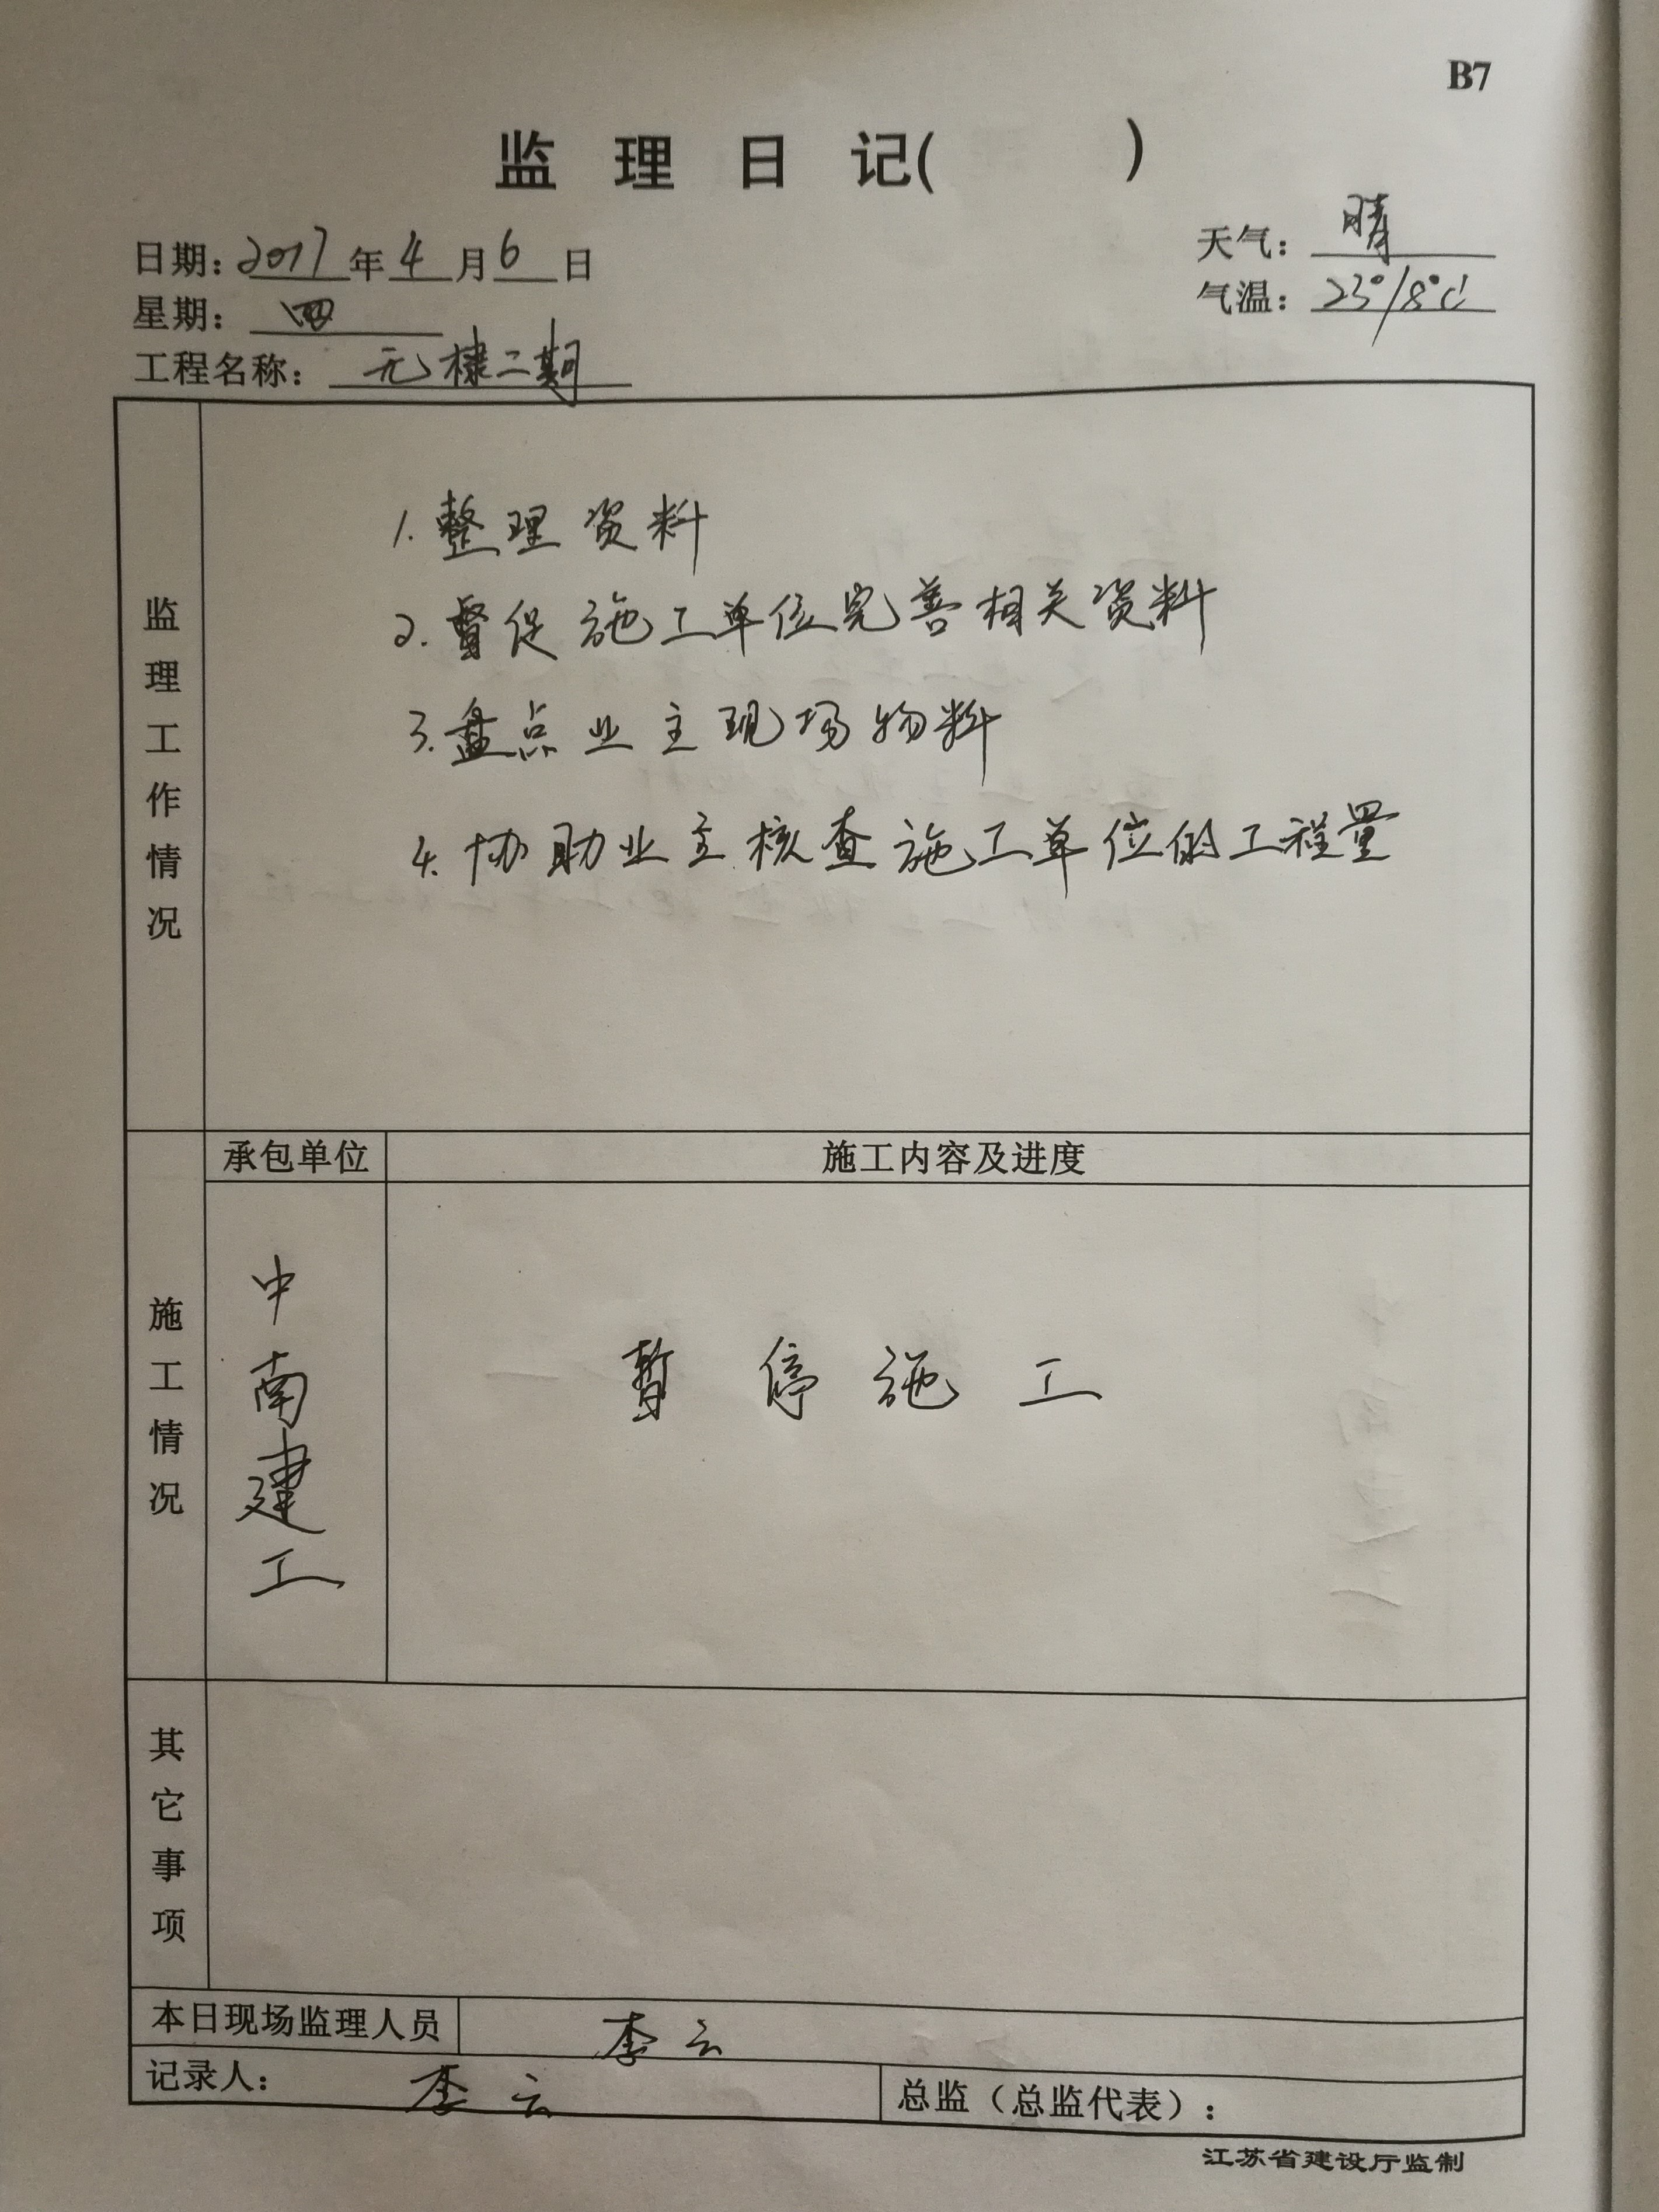 B7
监理日记(　　)
日期：2017年4月6日
天气：晴
星期：四
气温：23°/8℃
工程名称：无棣二期
监理工作情况
1.整理资料
2.督促施工单位完善相关资料
3.盘点业主现场物料
4.协助业主核查施工单位的工程量
施工情况
承包单位
施工内容及进度
中南建工
暂停施工
其它事项
本日现场监理人员
李云
记录人：李云
总监（总监代表）：
江苏省建设厅监制